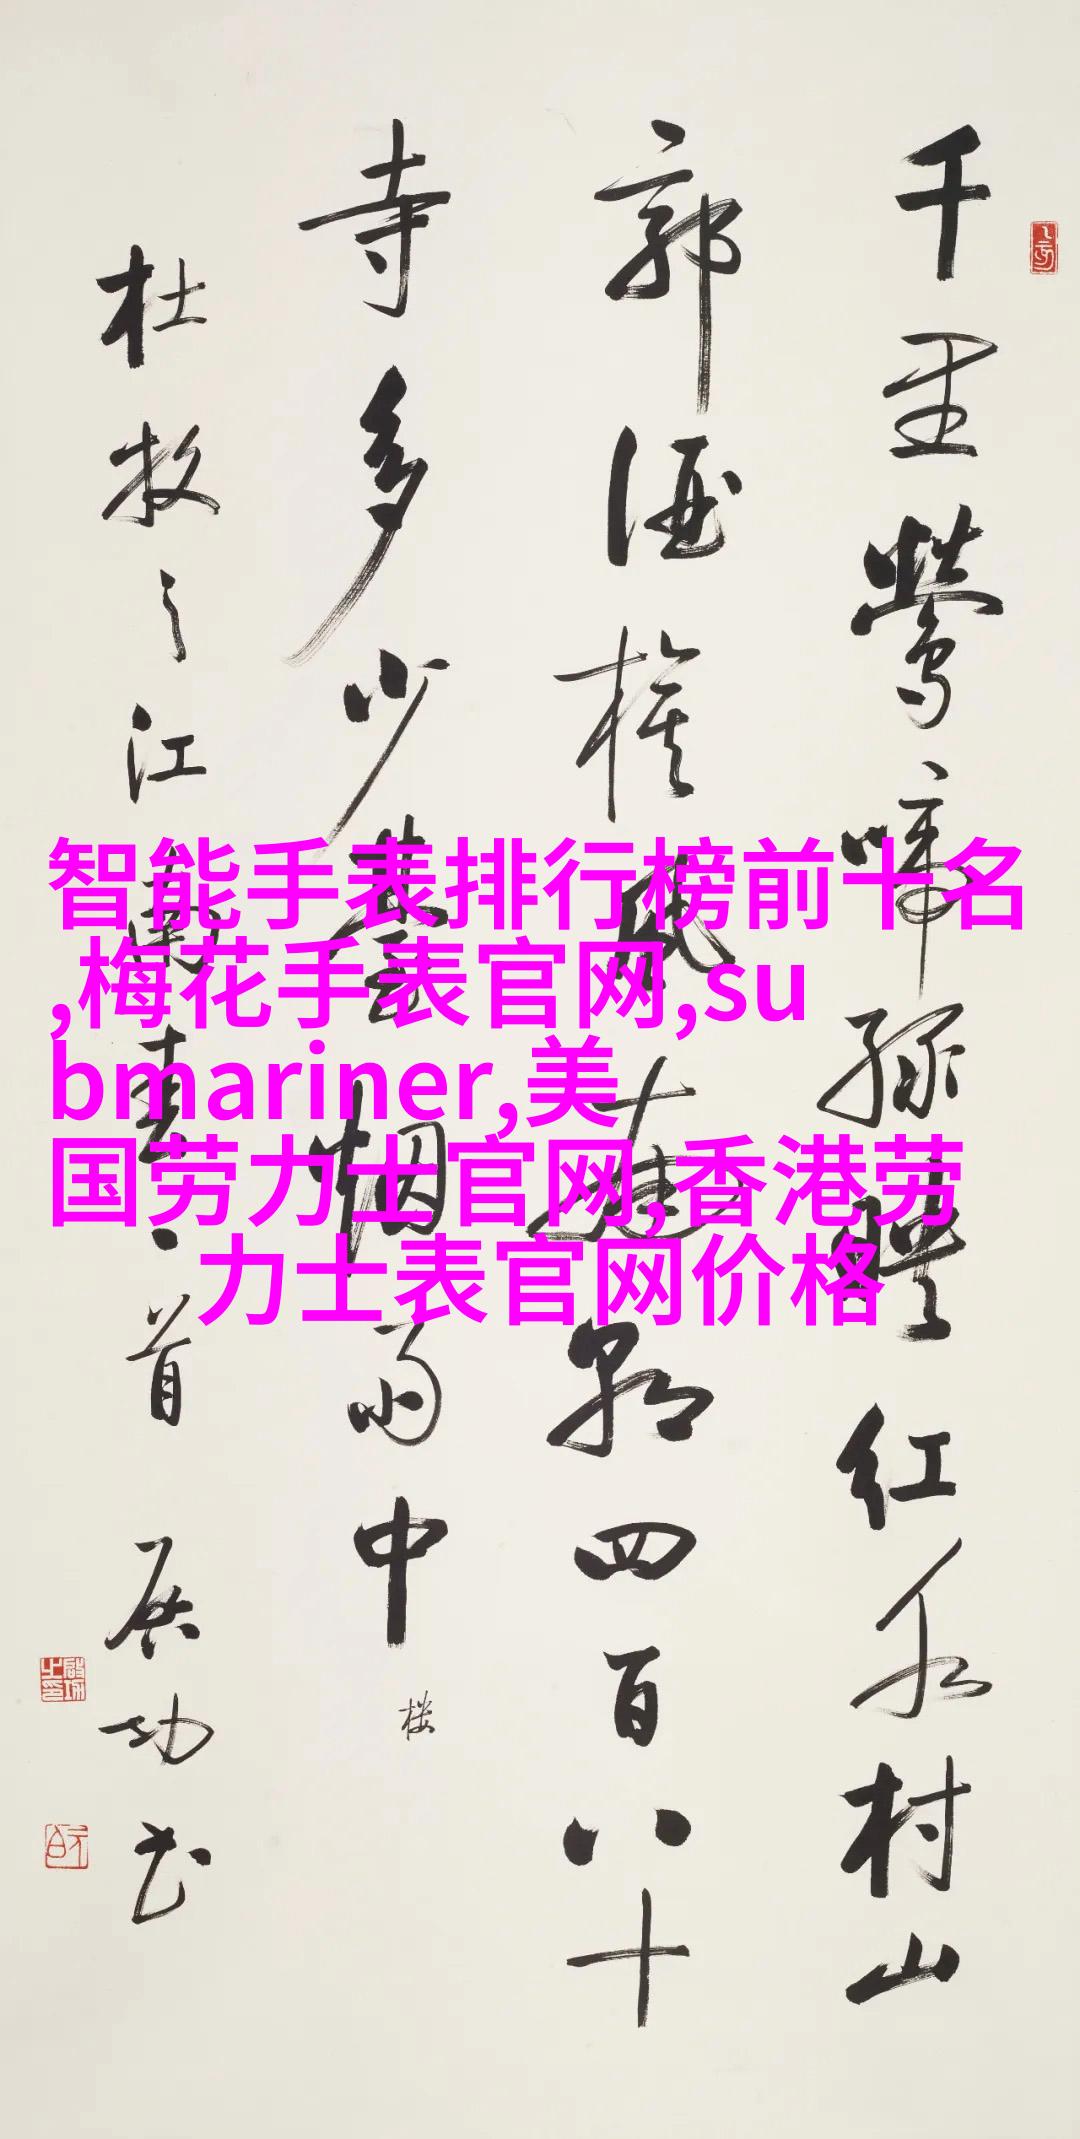 千里鶯啼緑映紅水村山
郭酒旗風南朝四百八十
寺多少臺烟雨中
楼
杜牧之江南春一首 啓功书
智能手表排行榜前十名
,梅花手表官网,su
bmariner,美
国劳力士官网,香港劳
力士表官网价格